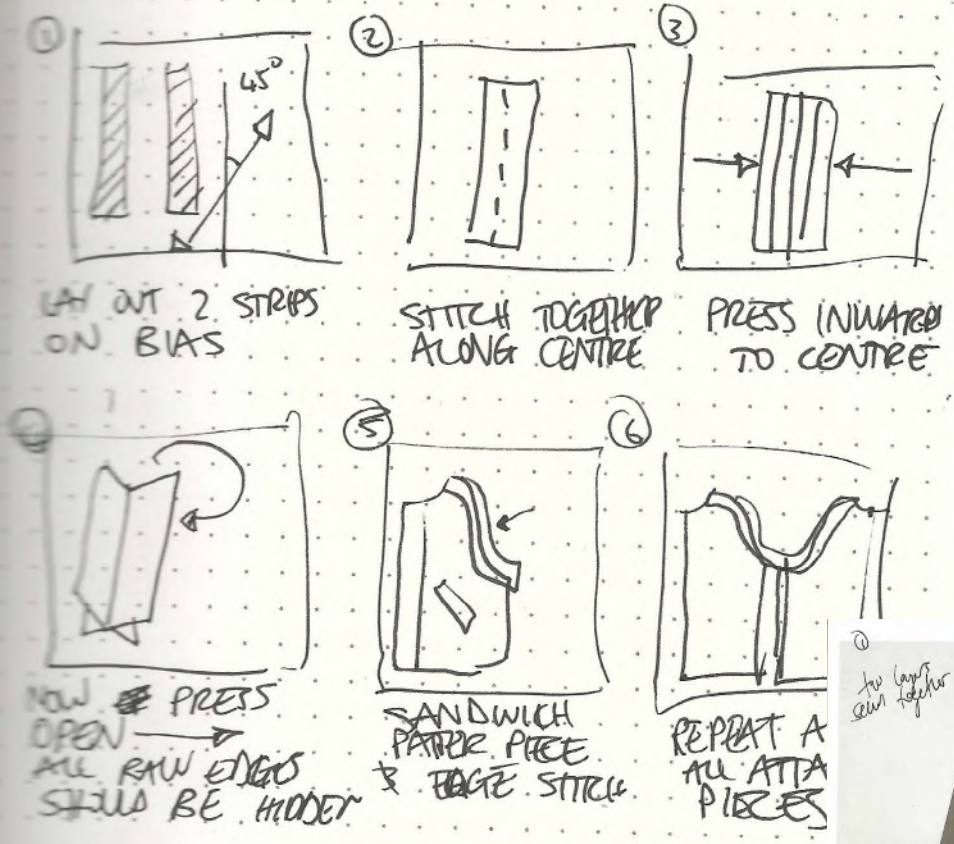 ①
45°
LAY OUT 2 STRIPS
ON BIAS
②
STITCH TOGETHER
ALONG CENTRE
③
PRESS INWARD
TO CENTRE
NOW PRESS
OPEN
ALL RAW EDGES
SHOULD BE HIDDEN
⑤
SANDWICH
PATTER PIECE
& EDGE STITCH
⑥
REPEAT A
ALL ATTA
PIECES
①
two layers
sewn together